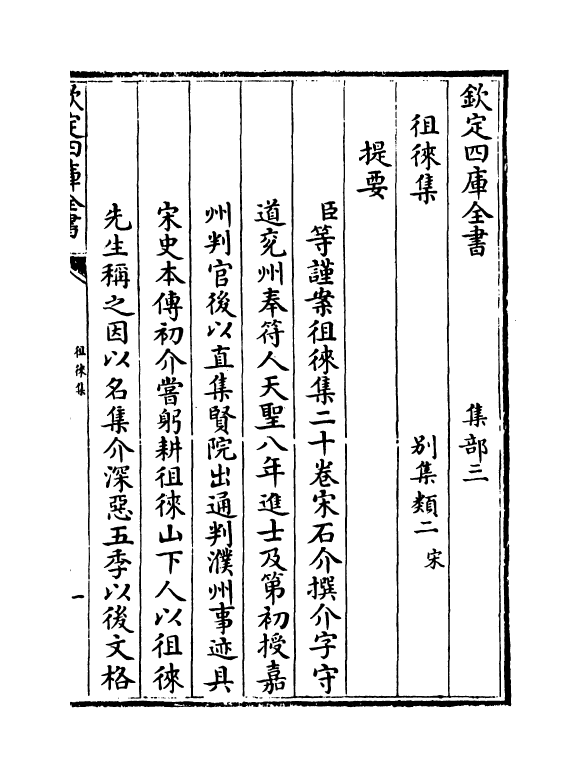 欽定四庫全書　集部三
徂徠集　別集類二宋
提要
臣等謹案徂徠集二十卷宋石介撰介字守
道兖州奉符人天聖八年進士及第初授嘉
州判官後以直集賢院出通判濮州事迹具
宋史本傳初介嘗躬耕徂徠山下人以徂徠
先生稱之因以名集介深惡五季以後文格
欽定四庫全書　徂徠集　一